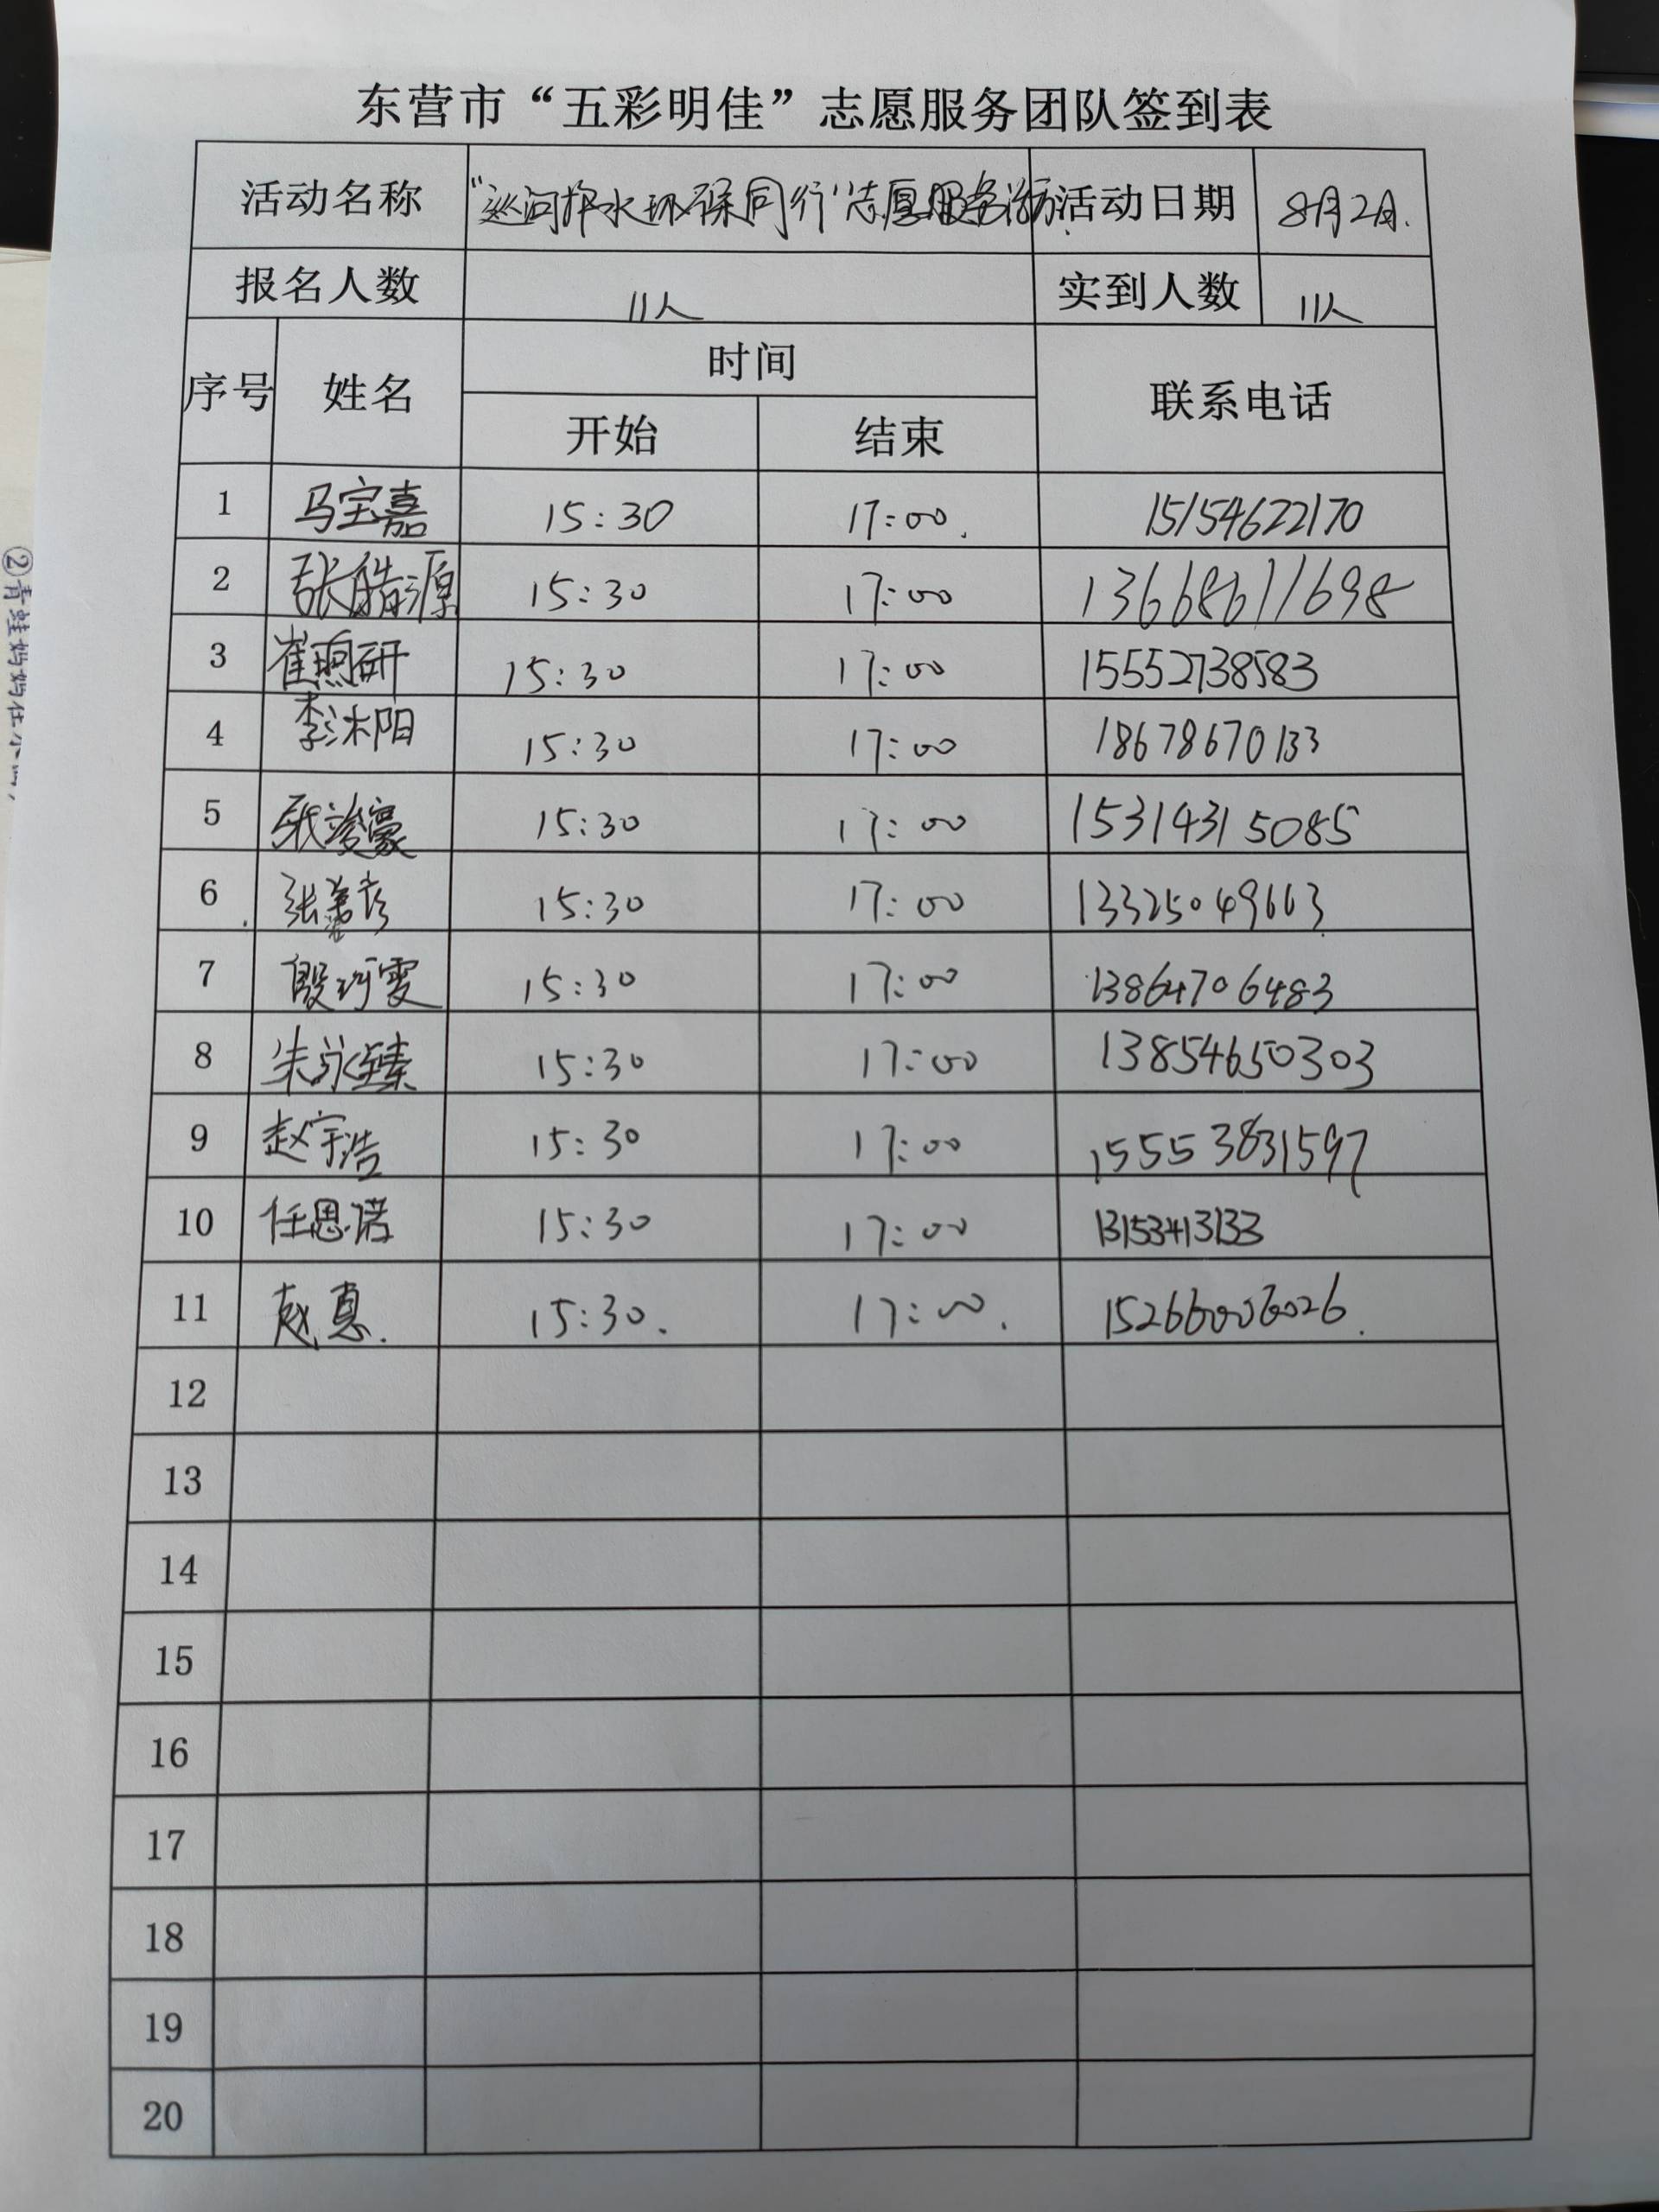 东营市“五彩明佳”志愿服务团队签到表
活动名称 “巡河护水 环保同行”志愿服务活动 活动日期 8月2日.
报名人数 11人 实到人数 11人
序号 姓名 时间 联系电话
开始 结束
1 马宝嘉 15:30 17:00. 15154622170
2 张皓源 15:30 17:00 13668611698
3 崔煦研 15:30 17:00 15552738583
4 李沐阳 15:30 17:00 18678670133
5 张竣豪 15:30 17:00 15314315085
6 张 15:30 17:00 13325049663
7 殷雯 15:30 17:00 13864706483
8 朱咏臻 15:30 17:00 13854650303
9 赵宇浩 15:30 17:00 15553831597
10 任思诺 15:30 17:00 13153413133
11 赵真. 15:30. 17:00. 15266006026.
12
13
14
15
16
17
18
19
20
②青蛙妈妈在